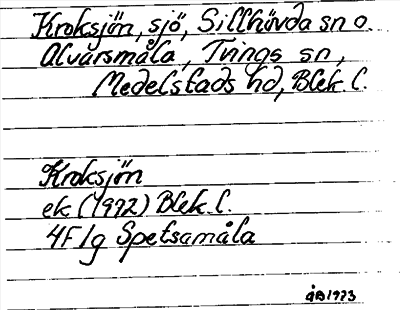 Kroksjön, sjö, Sillhövda sn o.
Alvarsmåla, Tvings sn,
Medelstads hd, Blek. l.
Kroksjön
ek. (1972) Blek. l.
4F 1g Spetsamåla
åB 1973